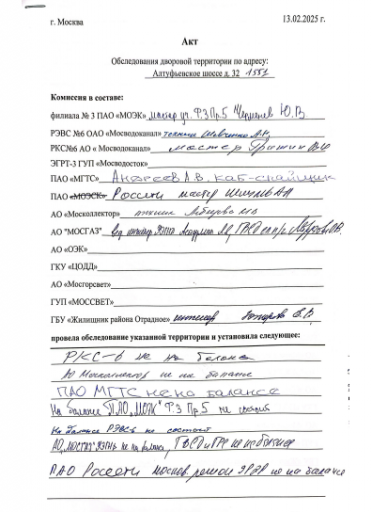 г. Москва 13.02.2025 г.
Акт
Обследования дворовой территории по адресу:
Алтуфьевское шоссе д. 32 1551
Комиссия в составе:
филиала № 3 ПАО «МОЭК» мастер уч. Ф.3 Пр.5 Ю.В
РЭВС №6 ОАО «Мосводоканал» техник Шевченко А.Н.
РКС№6 АО « Мосводоканал» мастер
ЭГРТ-3 ГУП «Мосводосток»
ПАО «МГТС» Андреев А.В. каб-спайщик
ПАО «МОЭСК» Россети мастер
АО «Москоллектор» техник
АО "МОСГАЗ"
АО «ОЭК»
ГКУ «ЦОДД»
АО «Мосгорсвет»
ГУП «МОССВЕТ»
ГБУ «Жилищник района Отрадное» инженер
провела обследование указанной территории и установила следующее:
РКС-6 не на балансе
АО Москоллектор не на балансе
ПАО МГТС не на балансе
На балансе ПАО „МОЭК" Ф.3 Пр.5 не состоит
На балансе РЭВС6 не состоит
АО „МОСГАЗ" не на балансе, не на балансе
ПАО Россети не на балансе